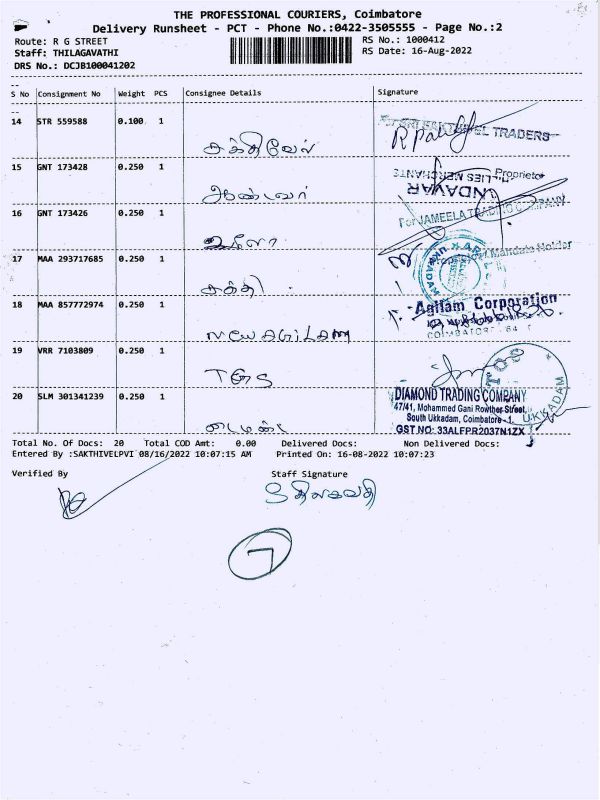 THE PROFESSIONAL COURIERS, Coimbatore
Delivery Runsheet - PCT - Phone No.:0422-3505555 - Page No.:2
Route: R G STREET
RS No.: 1000412
Staff: THILAGAVATHI
RS Date: 16-Aug-2022
DRS No.: DCJB100041202
S No Consignment No Weight PCS Consignee Details Signature
14 STR 559588 0.100 1
TRADERS
சக்திவேல்
15 GNT 173428 0.250 1
Proprietor
ANDAVAR
ஆண்டவர்
16 GNT 173426 0.250 1
For JAMEELA TRADING COMPANY
17 MAA 293717685 0.250 1
Mandate Holder
சக்தி
18 MAA 857772974 0.250 1
Agilam Corporation
COIMBATORE
19 VRR 7103809 0.250 1
TOS
UKKADAM
20 SLM 301341239 0.250 1
DIAMOND TRADING COMPANY
47/41, Mohammed Gani Rowther Street,
South Ukkadam, Coimbatore - 1.
GST NO: 33ALFPR2037N1ZX
டைமண்ட்
Total No. Of Docs: 20 Total COD Amt: 0.00 Delivered Docs: Non Delivered Docs:
Entered By :SAKTHIVELPVI 08/16/2022 10:07:15 AM Printed On: 16-08-2022 10:07:23
Verified By Staff Signature
திலகவதி
7